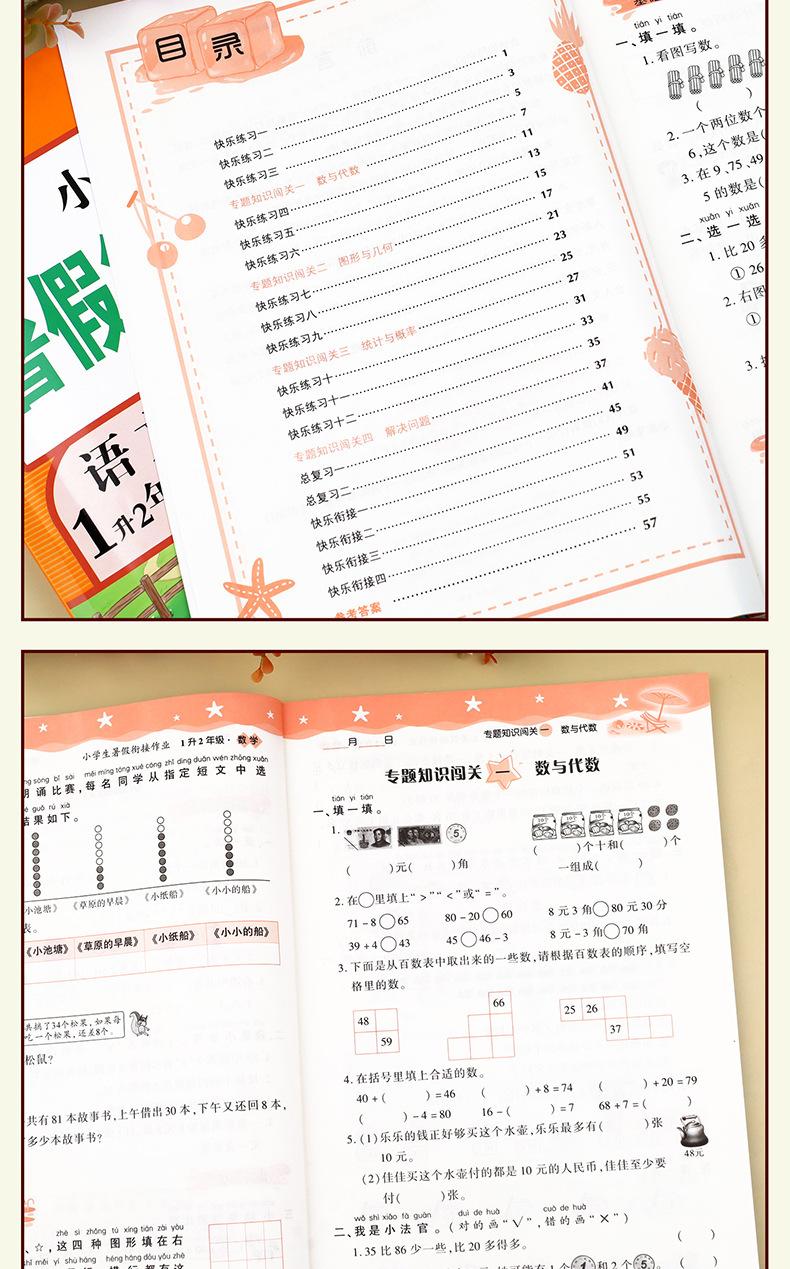 目录
快乐练习一 1
快乐练习二 3
快乐练习三 5
专题知识闯关一 数与代数 7
快乐练习四 11
快乐练习五 13
快乐练习六 15
专题知识闯关二 图形与几何 17
快乐练习七 21
快乐练习八 23
快乐练习九 25
专题知识闯关三 统计与概率 27
快乐练习十 31
快乐练习十一 33
快乐练习十二 35
专题知识闯关四 解决问题 37
总复习一 41
总复习二 45
快乐衔接一 49
快乐衔接二 51
快乐衔接三 53
快乐衔接四 55
参考答案 57
小
假
语
1升2年
tián yi tián
一、填一填。
1.看图写数。
( )
2.一个两位数个
6,这个数是(
3.在9、75、49
5的数是(
xuǎn yi xuǎn
二、选一选
1.比20多
①26
2.右图
①
3.
小学生暑假衔接作业 1升2年级·数学
sòng bǐ sài měi míng tóng xué cóng zhǐ dìng duǎn wén zhōng xuǎn
诵比赛,每名同学从指定短文中选
guǒ rú xià
结果如下。
小池塘》 《草原的早晨》 《小纸船》 《小小的船》
表。
《小池塘》 《草原的早晨》 《小纸船》 《小小的船》
共摘了34个松果,如果每
吃一个松果,还差8个。
松鼠?
共有81本故事书,上午借出30本,下午又还回8本,
多少本故事书?
zhè sì zhǒng tú xíng tián zài yòu
、☆,这四种图形填在右
měi yí shù háng héng háng dōu yǒu zhè
月 日
专题知识闯关一 数与代数
专题知识闯关 一 数与代数
tián yi tián
一、填一填。
1.
( )元( )角
( )个十和( )个
一组成( )
2.在○里填上“>”“<”或“=”。
71-8○65 80-20○60 8元3角○80元30分
39+4○43 45○46-3 8元-3角○70角
3.下面是从百数表中取出来的一些数,请根据百数表的顺序,填写空
格里的数。
48
59
66
25 26
37
4.在括号里填上合适的数。
40+( )=46 ( )+8=74 ( )+20=79
( )-4=80 16-( )=7 68+7=( )
5.(1)乐乐的钱正好够买这个水壶,乐乐最多有( )张
10元。
48元
(2)佳佳买这个水壶付的都是10元的人民币,佳佳至少要
付( )张。
wǒ shì xiǎo fǎ guān duì de huà cuò de huà
二、我是小法官。(对的画“√”,错的画“×”)
1.35比86少一些,比20多得多。 ( )